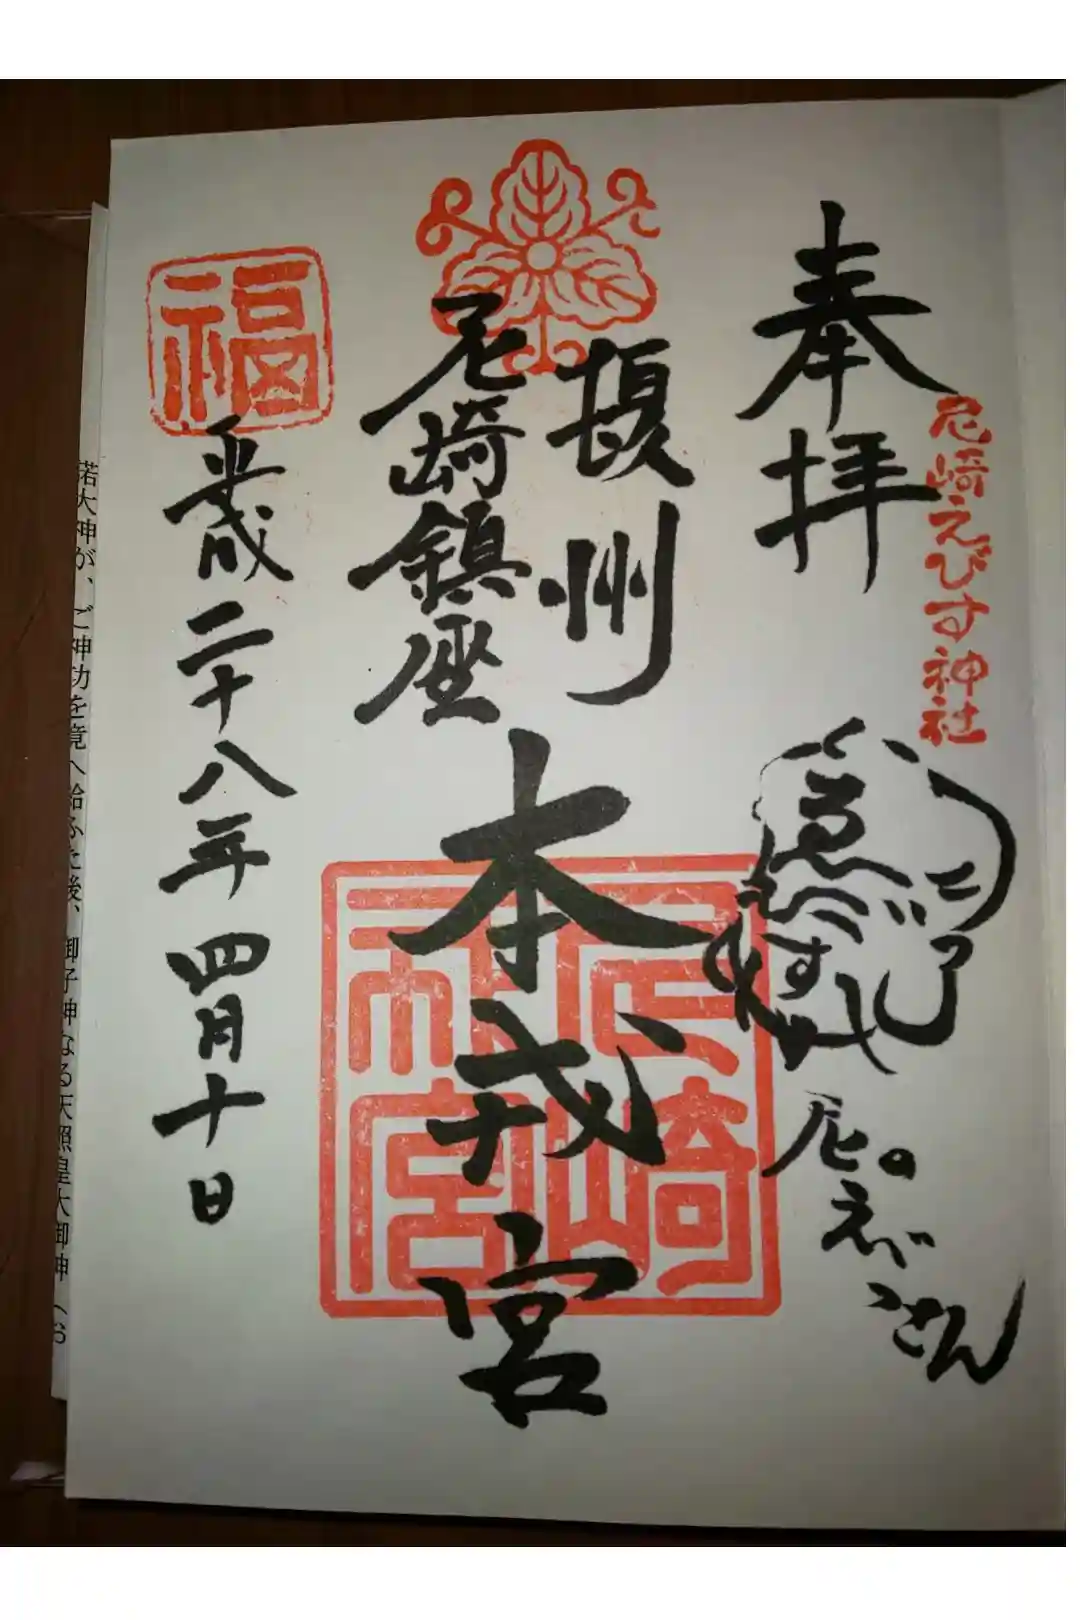 奉拝
尼崎えびす神社
尼のえべっさん
摂州
尼崎鎮座
本戎宮
尼崎
社宮
福
平成二十八年四月十日
諾大神が、ご神功を竟へ給ふた後、御子神なる天照皇大御神(お